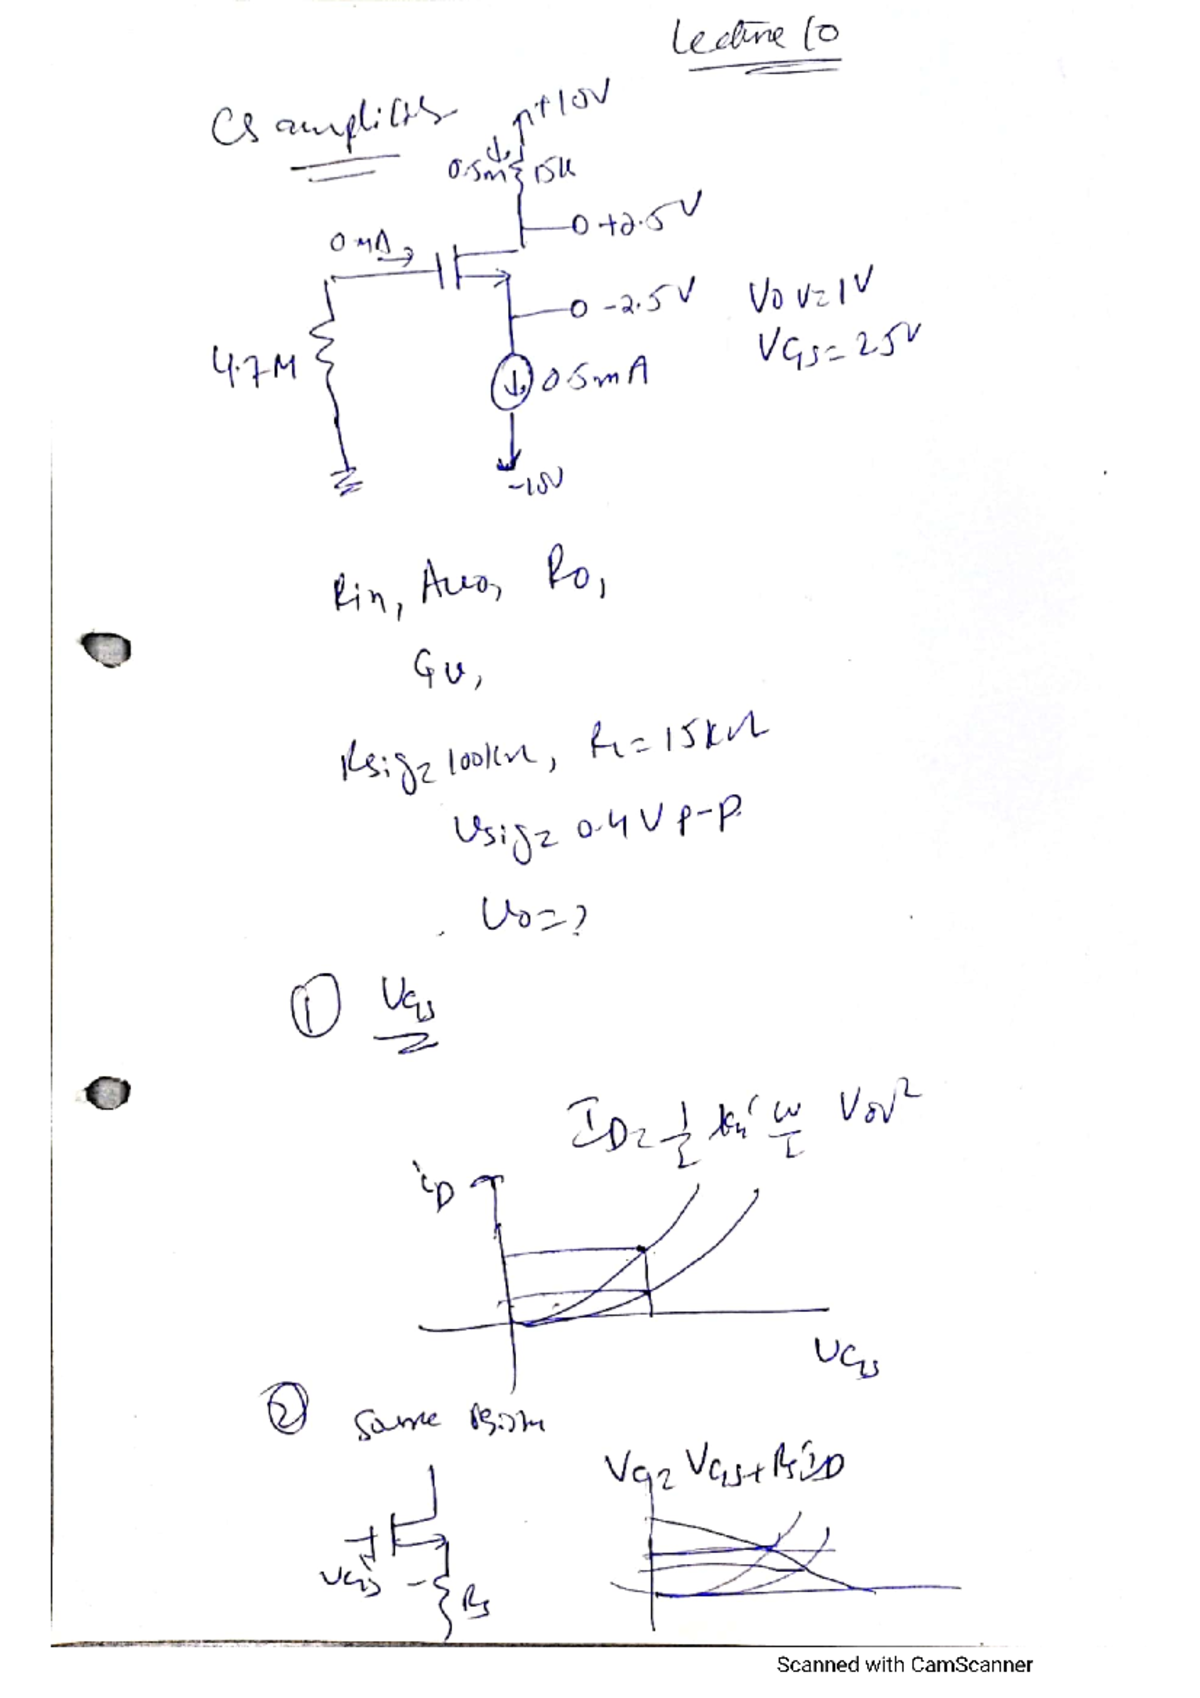 Lecture 10
CS amplifier
+10V
0.5m 15k
+2.5V
0 mA
-2.5V
VOV=1V
VGS=2.5V
4.7M
0.5mA
-10V
Rin, Avo, Ro,
Gv,
Rsig=100kΩ, RL=15kΩ
vsig=0.4V p-p
vo=?
① VGS
ID=1/2 kn' W/L VOV²
iD
VGS
② Same
VG=VGS+RSID
VGS
RS
Scanned with CamScanner